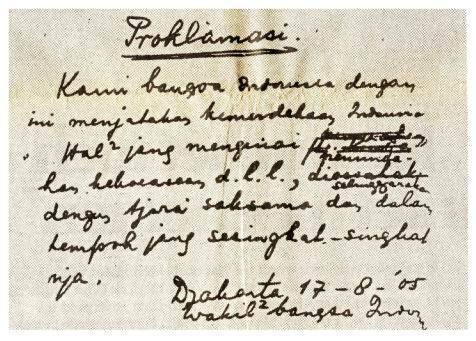 Proklamasi.
Kami bangsa Indonesia dengan
ini menjatakan kemerdekaan Indonesia
. Hal² jang mengenai
pemindahan
kekoeasaan d.l.l., diselenggarakan
dengan tjara saksama dan dalam
tempoh jang sesingkat-singkat
nja.
Djakarta, 17 - 8 - '05
Wakil² bangsa Indon